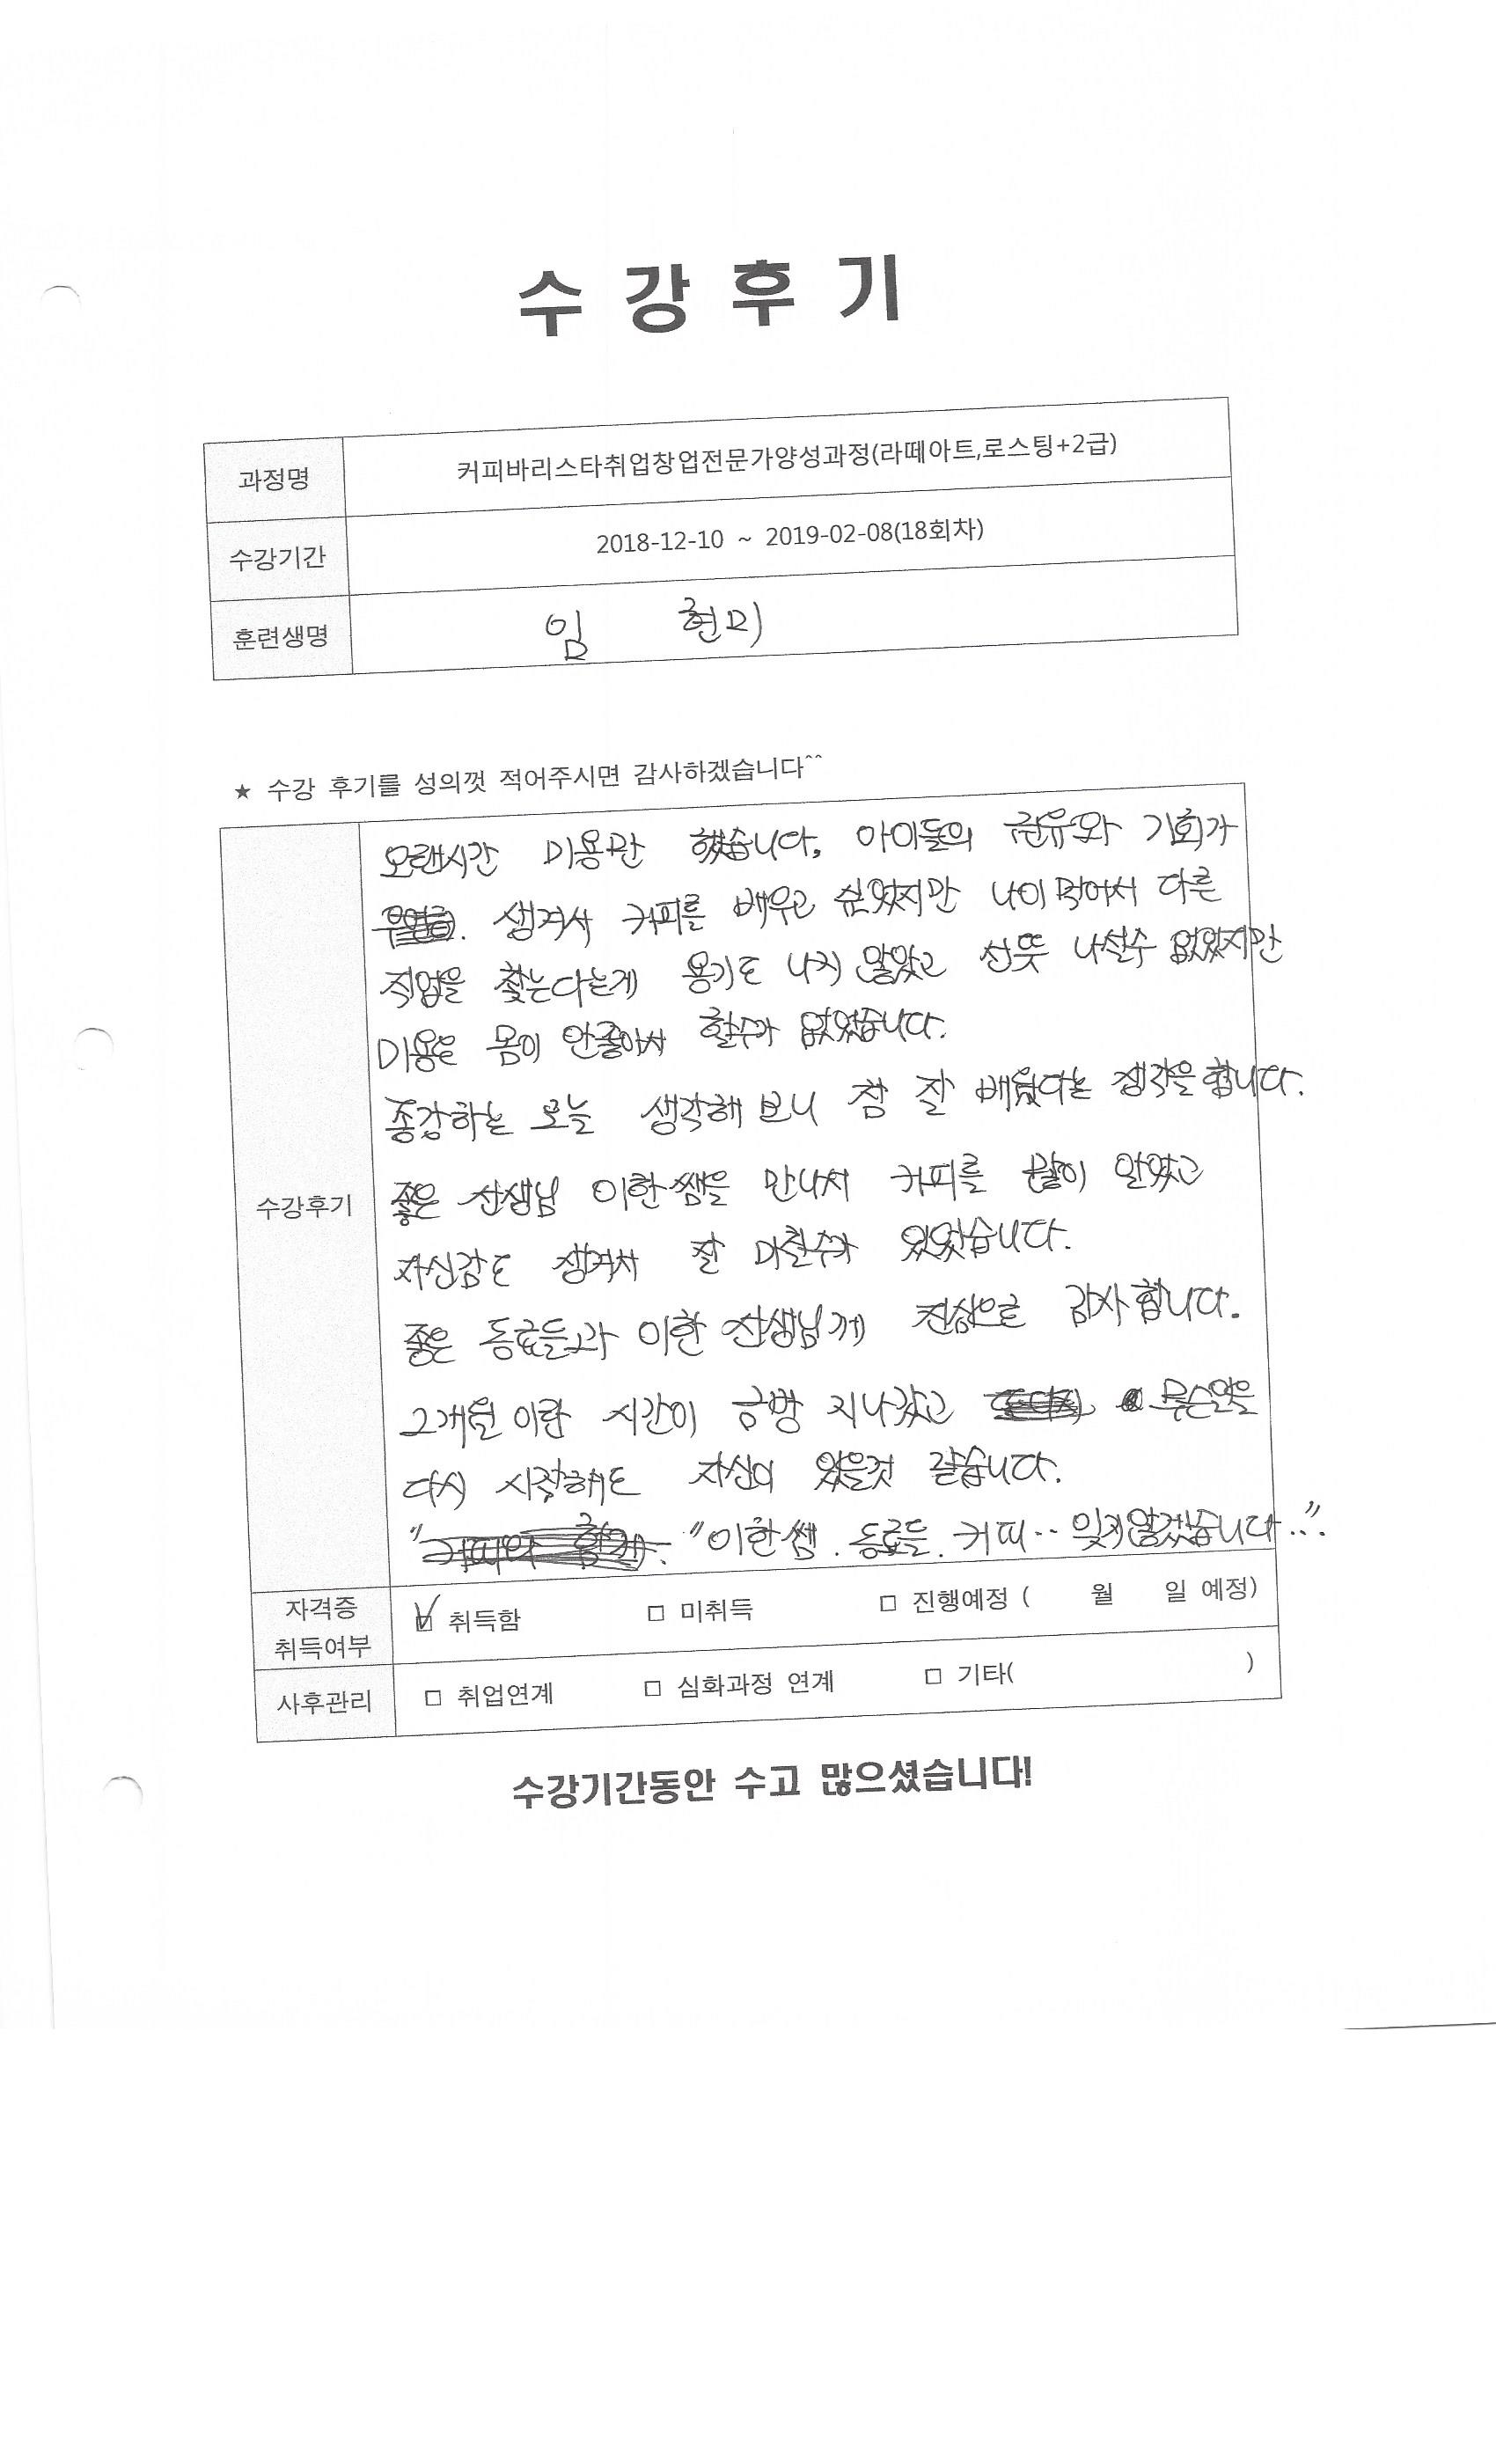 수강후기
과정명 커피바리스타취업창업전문가양성과정(라떼아트,로스팅+2급)
수강기간 2018-12-10 ~ 2019-02-08(18회차)
훈련생명 임 현미
★ 수강 후기를 성의껏 적어주시면 감사하겠습니다^^
오랜시간 미용만 했습니다. 아이들의 권유와 기회가
생겨서 커피를 배우고 싶었지만 나이 먹어서 다른
직업을 찾는다는게 용기도 나지 않았고 선뜻 나설수 없었지만
미용은 몸이 안좋아서 할수가 없었습니다.
종강하는 오늘 생각해 보니 참 잘 배웠다는 생각을 합니다.
수강후기
좋은 선생님 이한쌤을 만나서 커피를 많이 알았고
자신감도 생겨서 잘 마칠수가 있었습니다.
좋은 동료들과 이한 선생님께 진심으로 감사합니다.
2개월 이란 시간이 금방 지나갔고 무슨일을
다시 시작해도 자신이 있을것 같습니다.
"이한쌤. 동료들. 커피.. 잊지않겠습니다..".
자격증 취득여부 ☑ 취득함 □ 미취득 □ 진행예정 ( 월 일 예정)
사후관리 □ 취업연계 □ 심화과정 연계 □ 기타( )
수강기간동안 수고 많으셨습니다!